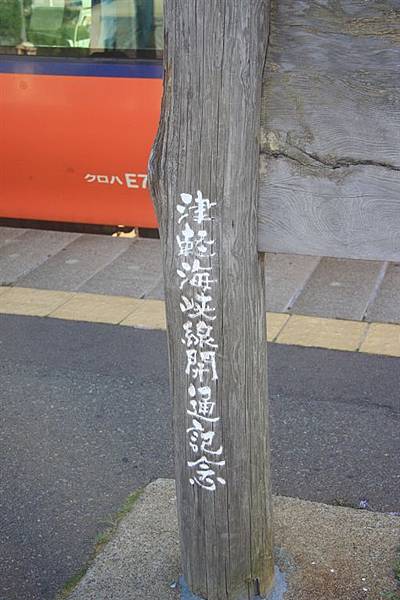 クロハE7
津軽海峡線開通記念